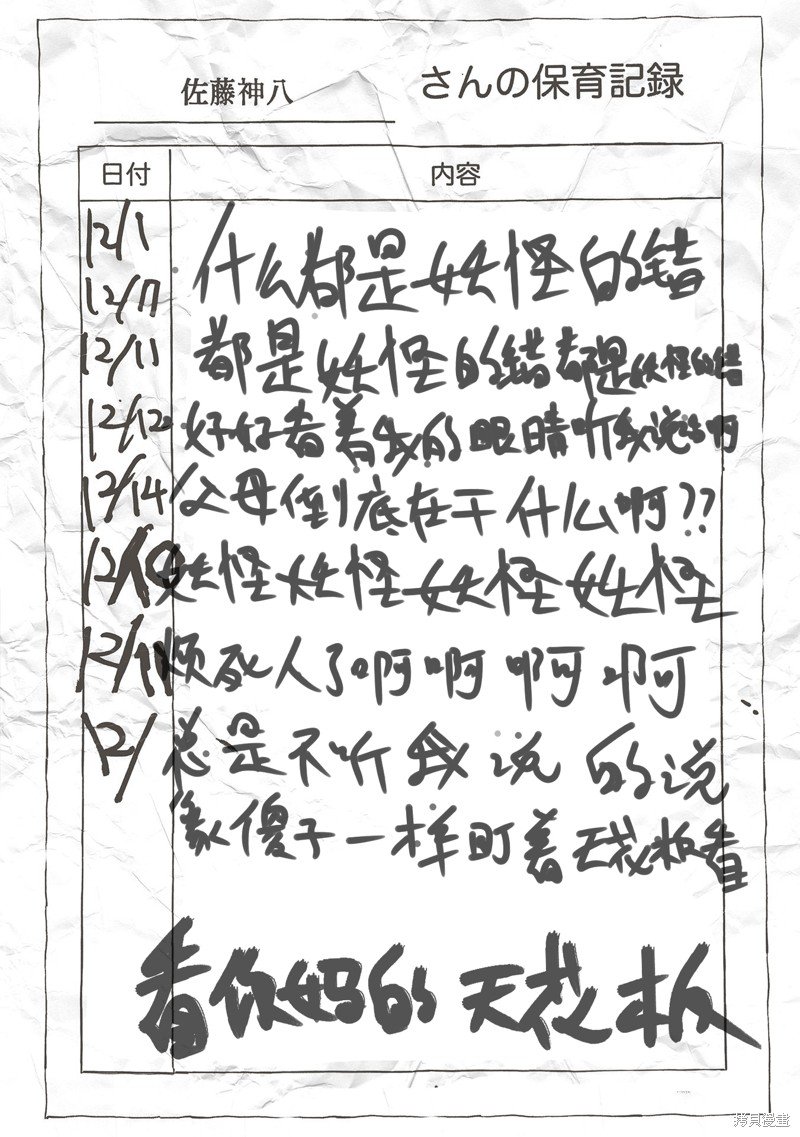 佐藤神八 さんの保育記録
日付 内容
12/1 什么都是妖怪的错
12/7
12/11 都是妖怪的错都是妖怪的错
12/12 好好看着我的眼睛听我说话啊
12/14 父母倒底在干什么啊??
12/ 妖怪妖怪妖怪妖怪
12/11 烦死人了啊啊啊啊
12/ 总是不听我说的说
像傻子一样盯着天花板看
看你妈的天花板
拷貝漫畫